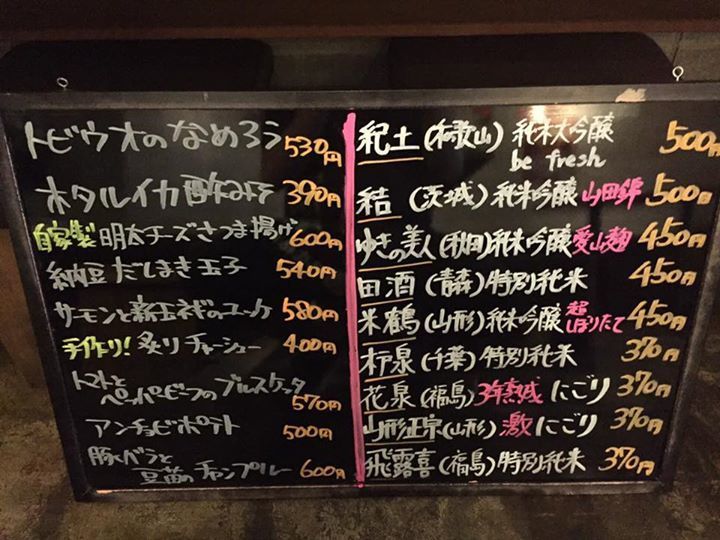 トビウオのなめろう 530円
ホタルイカ酢みそ 390円
自家製 明太チーズさつま揚げ 600円
納豆だしまき玉子 540円
サーモンと新玉ネギのユッケ 580円
手作り! 炙りチャーシュー 400円
トマトと
ペッパービーフのブルスケッタ 570円
アンチョビポテト 500円
豚バラと
豆苗のチャンプルー 600円
紀土(和歌山)純米大吟醸 500円
be fresh
結(茨城)純米吟醸 山田錦 500円
ゆきの美人(秋田)純米吟醸 愛山麹 450円
田酒(青森)特別純米 450円
米鶴(山形)純米吟醸 超しぼりたて 450円
泉(千葉)特別純米 370円
花泉(福島)3年熟成 にごり 370円
山形正宗(山形)激にごり 370円
飛露喜(福島)特別純米 370円